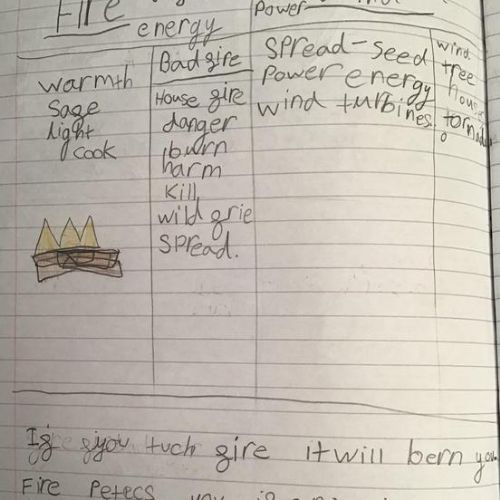 Fire
energy
Power
warmth
Sage
light
cook
Bad gire
House gire
danger
burn
harm
Kill
wild grie
Spread.
Spread-seed
Power energy
wind turbines.
wind
tree
Ig you tuch gire it will bern you
Fire Petecs you